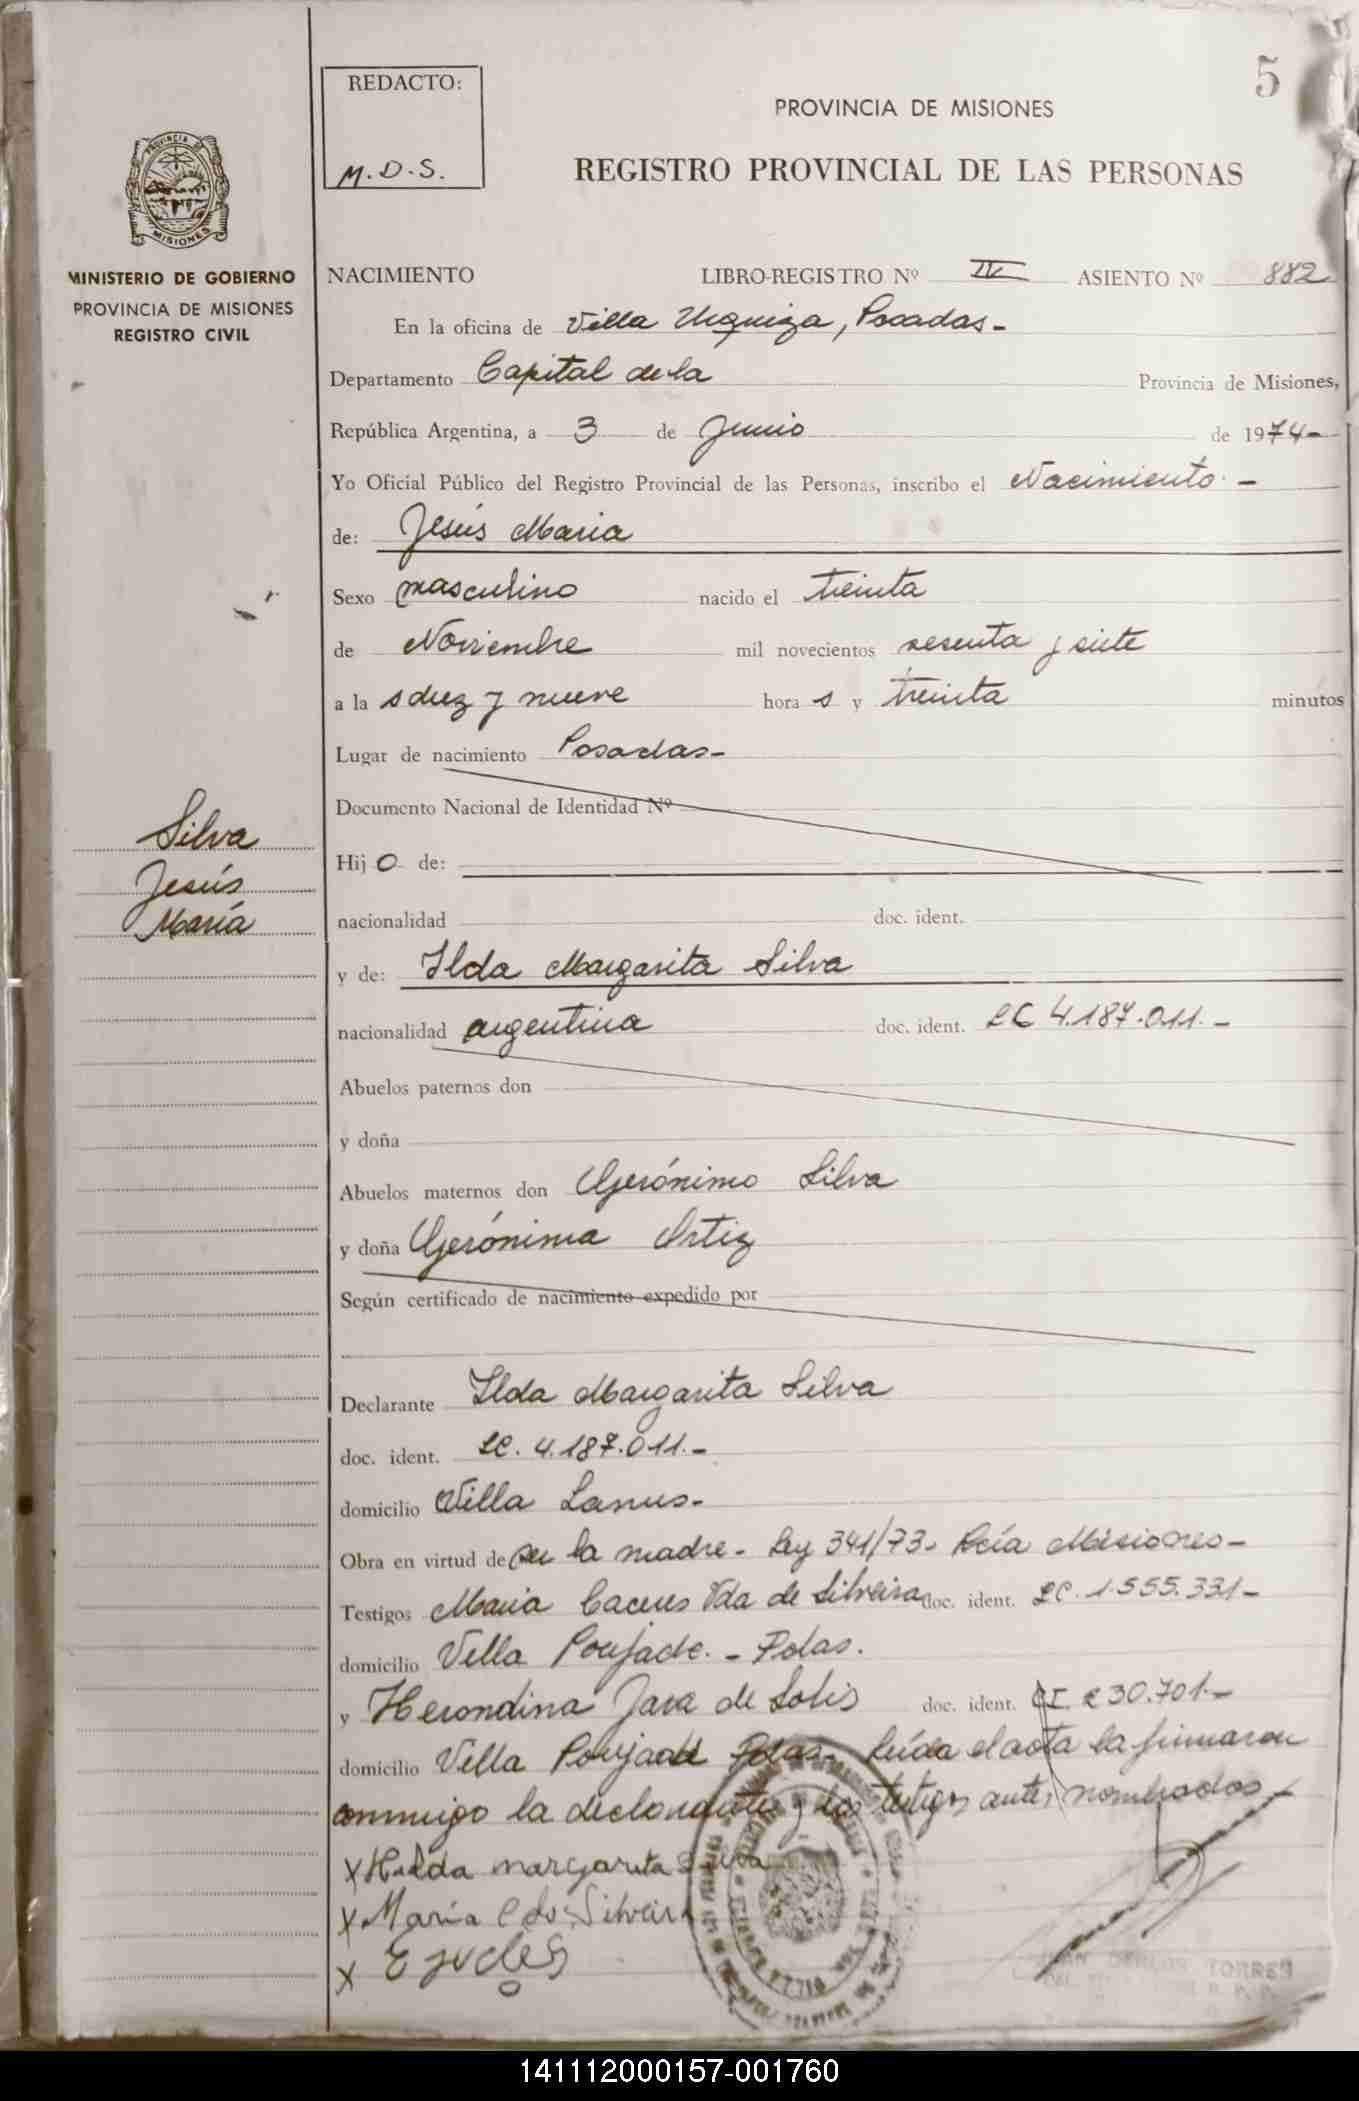 5
REDACTO:
M.D.S.
PROVINCIA DE MISIONES
REGISTRO PROVINCIAL DE LAS PERSONAS
PROVINCIA DE
MISIONES
MINISTERIO DE GOBIERNO
PROVINCIA DE MISIONES
REGISTRO CIVIL
NACIMIENTO LIBRO-REGISTRO Nº IV ASIENTO Nº 882
En la oficina de Villa Urquiza, Posadas-
Departamento Capital de la Provincia de Misiones,
República Argentina, a 3 de Junio de 1974-
Yo Oficial Público del Registro Provincial de las Personas, inscribo el Nacimiento-
de: Jesús Maria
Sexo masculino nacido el treinta
de Noviembre mil novecientos sesenta y siete
a la s diez y nueve hora s y treinta minutos
Lugar de nacimiento Posadas-
Documento Nacional de Identidad Nº
Silva
Jesús
María
Hij o de:
nacionalidad doc. ident.
y de: Ilda Margarita Silva
nacionalidad argentina doc. ident. LC 4.187.011.-
Abuelos paternos don
y doña
Abuelos maternos don Gerónimo Silva
y doña Gerónima Ortiz
Según certificado de nacimiento expedido por
Declarante Ilda Margarita Silva
doc. ident. LC. 4.187.011.-
domicilio Villa Lanus-
Obra en virtud de ser la madre- Ley 341/73- Pcía Misiones-
Testigos Maria Caceres Vda de Silveira doc. ident. LC. 1.555.331-
domicilio Villa Poujade.- Pdas.
y Herondina Jara de Solis doc. ident. CI 230.701-
domicilio Villa Poujade Pdas- Leída el acta la firmaron
conmigo la declarante y los testigos antes nombrados-
x Hilda margarita Silva
x María C de Silveira
x
JUAN CARLOS TORRES
141112000157-001760